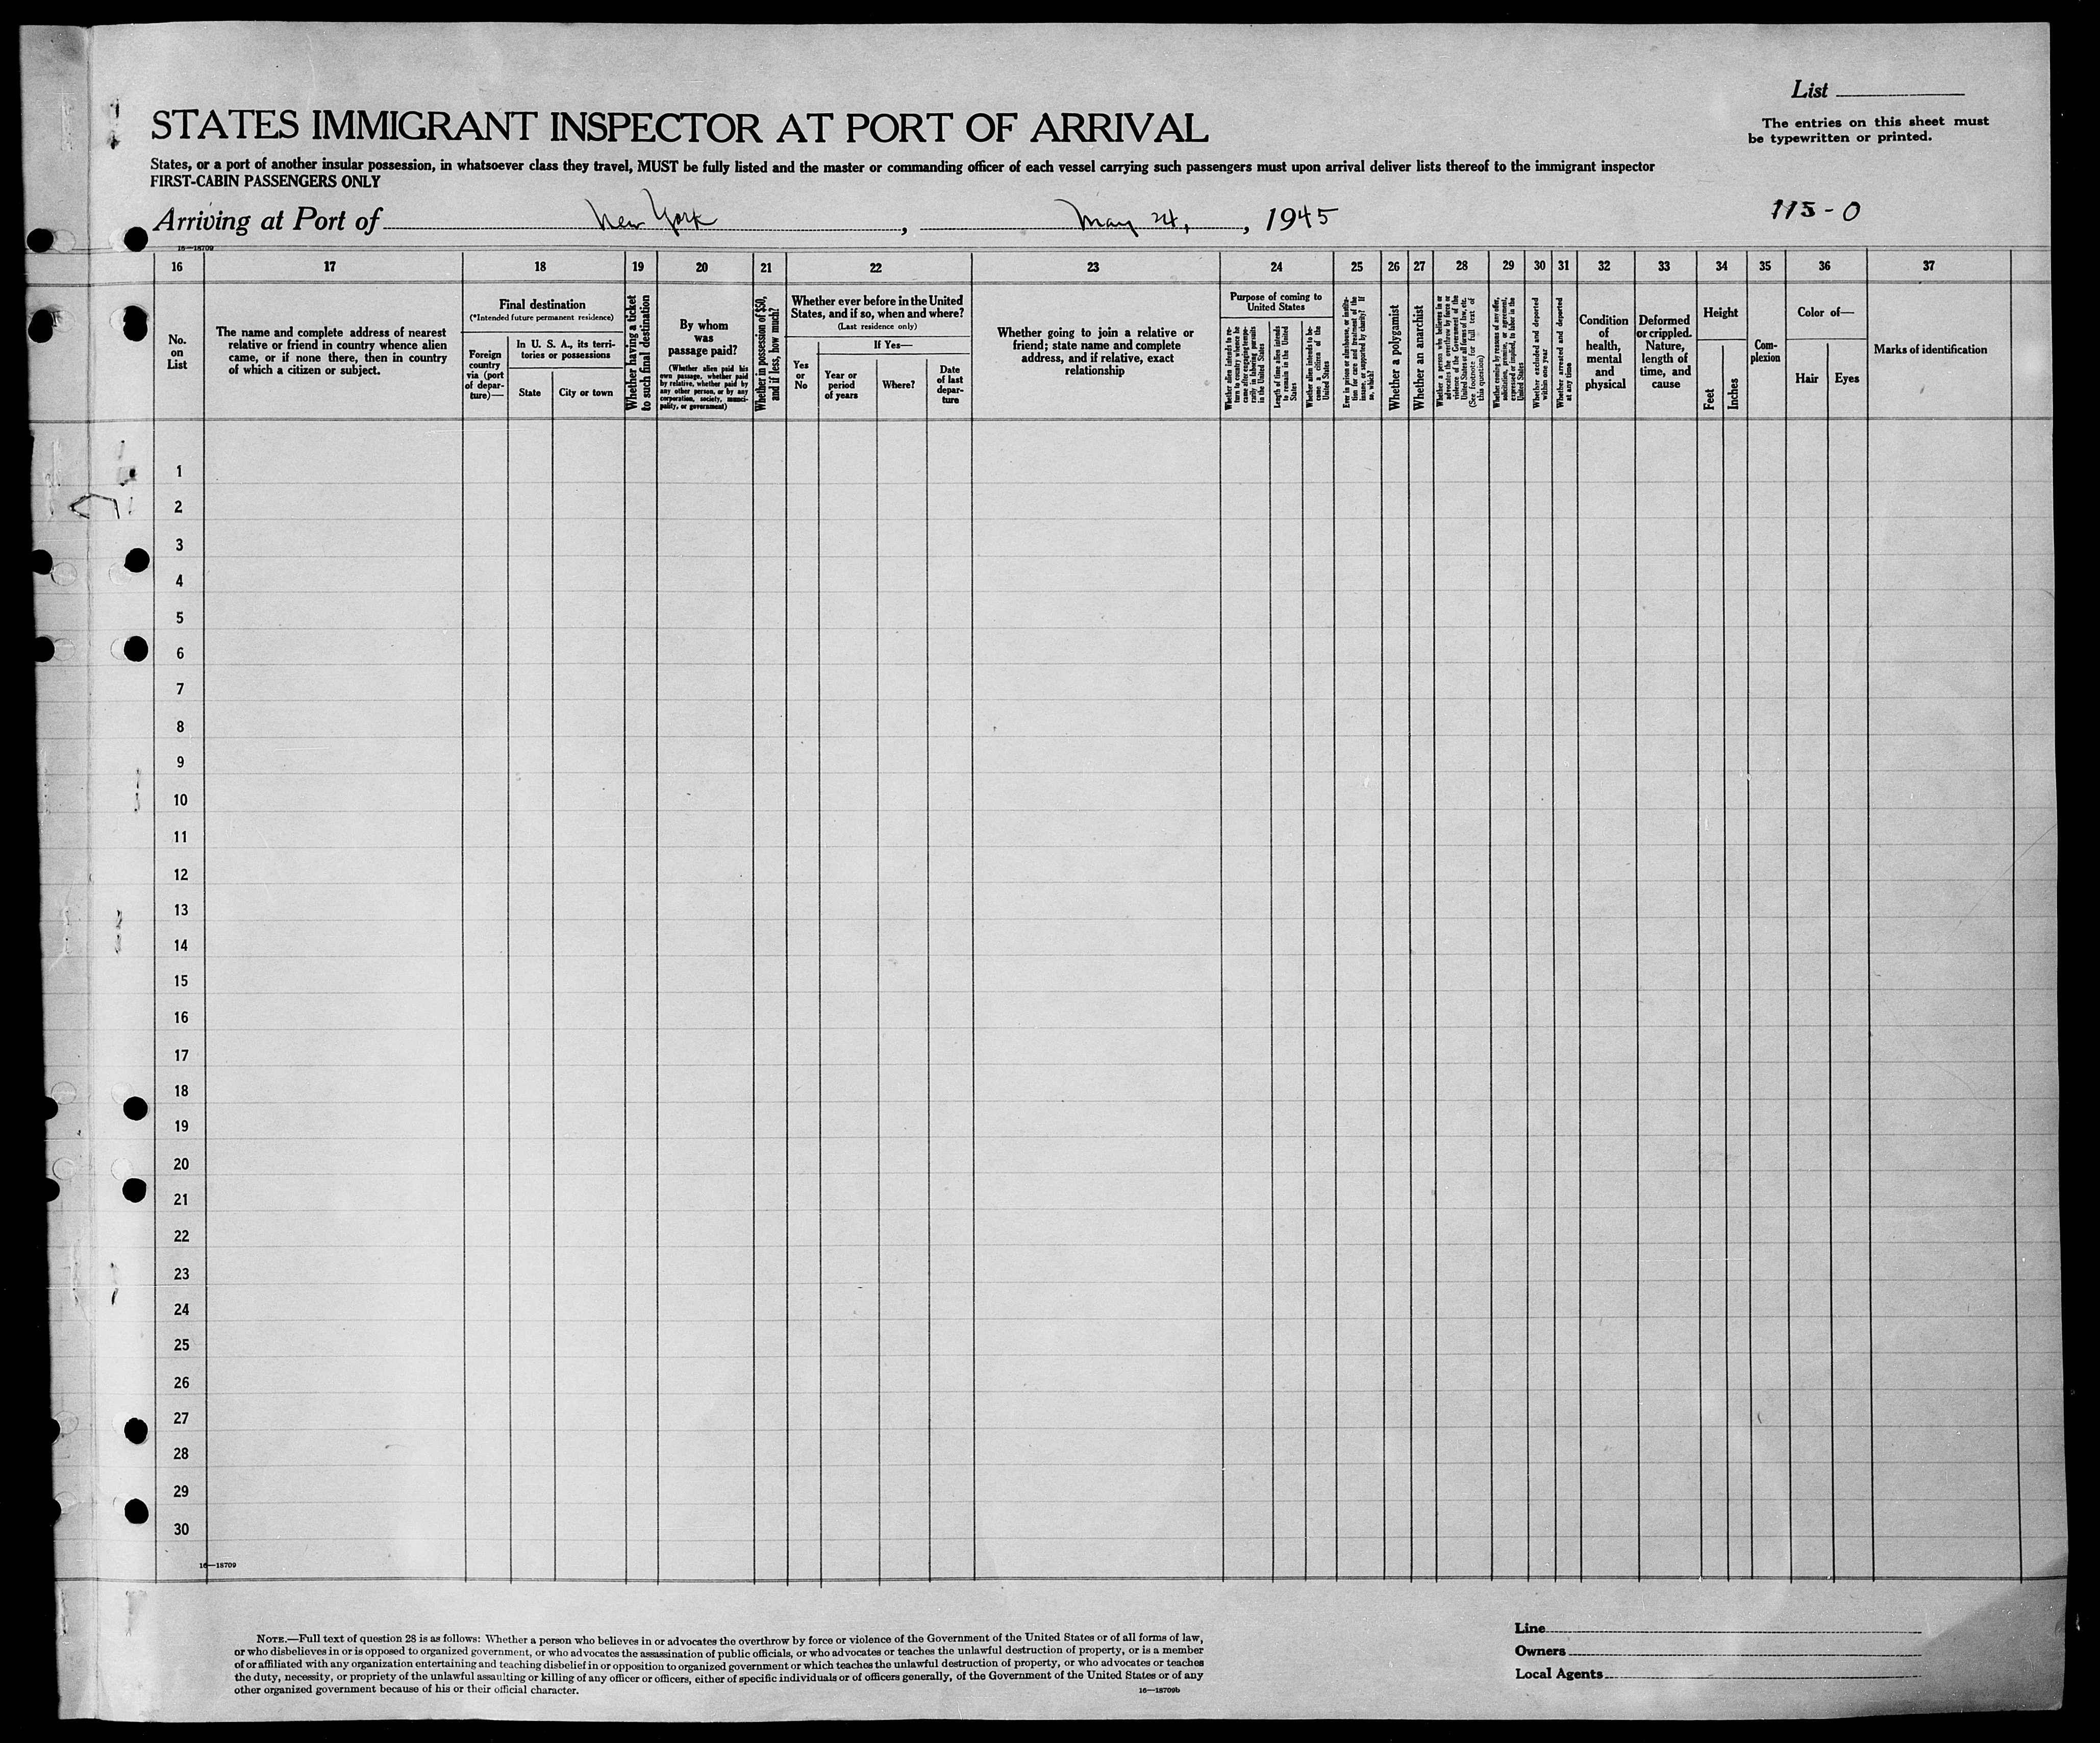 List
STATES IMMIGRANT INSPECTOR AT PORT OF ARRIVAL
The entries on this sheet must
be typewritten or printed.
States, or a port of another insular possession, in whatsoever class they travel, MUST be fully listed and the master or commanding officer of each vessel carrying such passengers must upon arrival deliver lists thereof to the immigrant inspector
FIRST-CABIN PASSENGERS ONLY
Arriving at Port of New York, May 24, , 1945
115-0
16—18709
16 17 18 19 20 21 22 23 24 25 26 27 28 29 30 31 32 33 34 35 36 37
No.
on
List
The name and complete address of nearest
relative or friend in country whence alien
came, or if none there, then in country
of which a citizen or subject.
Final destination
(*Intended future permanent residence)
Foreign
country
via (port
of depar-
ture)—
In U. S. A., its terri-
tories or possessions
State
City or town
Whether having a ticket
to such final destination
By whom
was
passage paid?
(Whether alien paid his
own passage, whether paid
by relative, whether paid by
any other person, or by any
corporation, society, munici-
pality, or government)
Whether in possession of $50,
and if less, how much?
Whether ever before in the United
States, and if so, when and where?
(Last residence only)
Yes
or
No
If Yes—
Year or
period
of years
Where?
Date
of last
depar-
ture
Whether going to join a relative or
friend; state name and complete
address, and if relative, exact
relationship
Purpose of coming to
United States
Whether alien intends to re-
turn to country whence he
came after engaging tempo-
rarily in laboring pursuits
in the United States
Length of time alien intends
to remain in the United
States
Whether alien intends to be-
come a citizen of the
United States
Ever in prison or almshouse, or institu-
tion for care and treatment of the
insane, or supported by charity? If
so, which?
Whether a polygamist
Whether an anarchist
Whether a person who believes in or
advocates the overthrow by force or
violence of the Government of the
United States or all forms of law, etc.
(See footnote for full text of
this question)
Whether coming by reason of any offer,
solicitation, promise, or agreement,
expressed or implied, to labor in the
United States
Whether excluded and deported
within one year
Whether arrested and deported
at any time
Condition
of
health,
mental
and
physical
Deformed
or crippled.
Nature,
length of
time, and
cause
Height
Feet
Inches
Com-
plexion
Color of—
Hair
Eyes
Marks of identification
1
2
3
4
5
6
7
8
9
10
11
12
13
14
15
16
17
18
19
20
21
22
23
24
25
26
27
28
29
30
16—18709
NOTE.—Full text of question 28 is as follows: Whether a person who believes in or advocates the overthrow by force or violence of the Government of the United States or of all forms of law,
or who disbelieves in or is opposed to organized government, or who advocates the assassination of public officials, or who advocates or teaches the unlawful destruction of property, or is a member
of or affiliated with any organization entertaining and teaching disbelief in or opposition to organized government or which teaches the unlawful destruction of property, or who advocates or teaches
the duty, necessity, or propriety of the unlawful assaulting or killing of any officer or officers, either of specific individuals or of officers generally, of the Government of the United States or of any
other organized government because of his or their official character.
16—18709b
Line
Owners
Local Agents